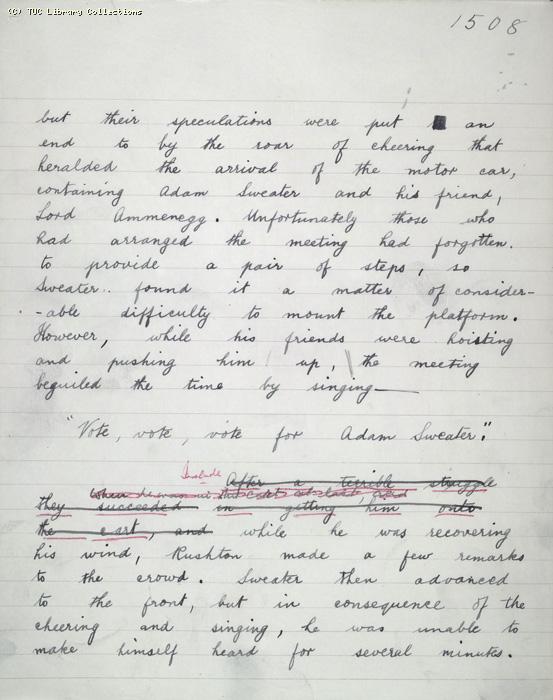 (C) TUC Library Collections
1508
but their speculations were put an
end to by the roar of cheering that
heralded the arrival of the motor car,
containing Adam Sweater and his friend,
Lord Ammenegg. Unfortunately those who
had arranged the meeting had forgotten.
to provide a pair of steps, so
Sweater.. found it a matter of consider-
-able difficulty to mount the platform.
However, while his friends were hoisting
and pushing him up, the meeting
beguiled the time by singing—
"Vote, vote, vote for Adam Sweater."
Include
After a terrible struggle
When he was at last
they succeeded in getting him onto
the cart, and while he was recovering
his wind, Rushton made a few remarks
to the crowd. Sweater then advanced
to the front, but in consequence of the
cheering and singing, he was unable to
make himself heard for several minutes.